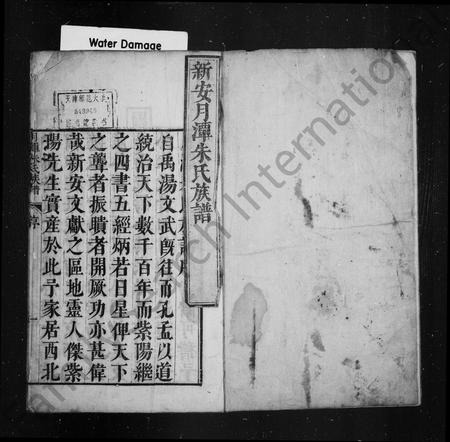 Water Damage
新安月潭朱氏族譜
自禹湯文武旣往而孔孟以道
統治天下數千百年而紫陽繼
之四書五經炳若日星俾天下
之聾者振聵者開厥功亦甚偉
哉新安文獻之區地靈人傑紫
陽先生實産於此予家居西北
序